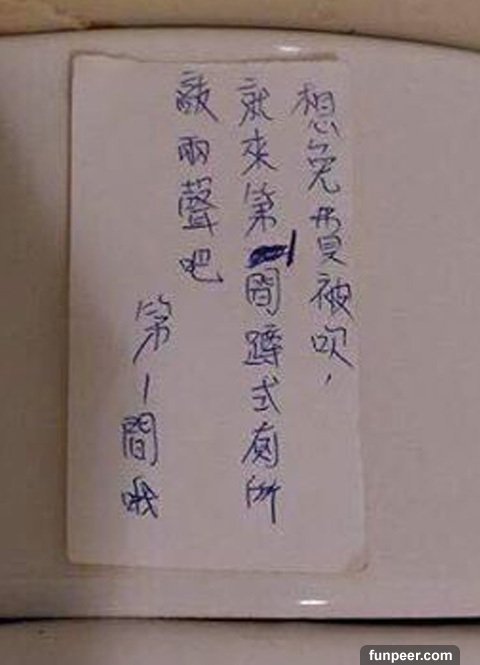 想免費被吹，
就來第1間蹲式廁所
敲兩聲吧
第1間哦
funpeer.com